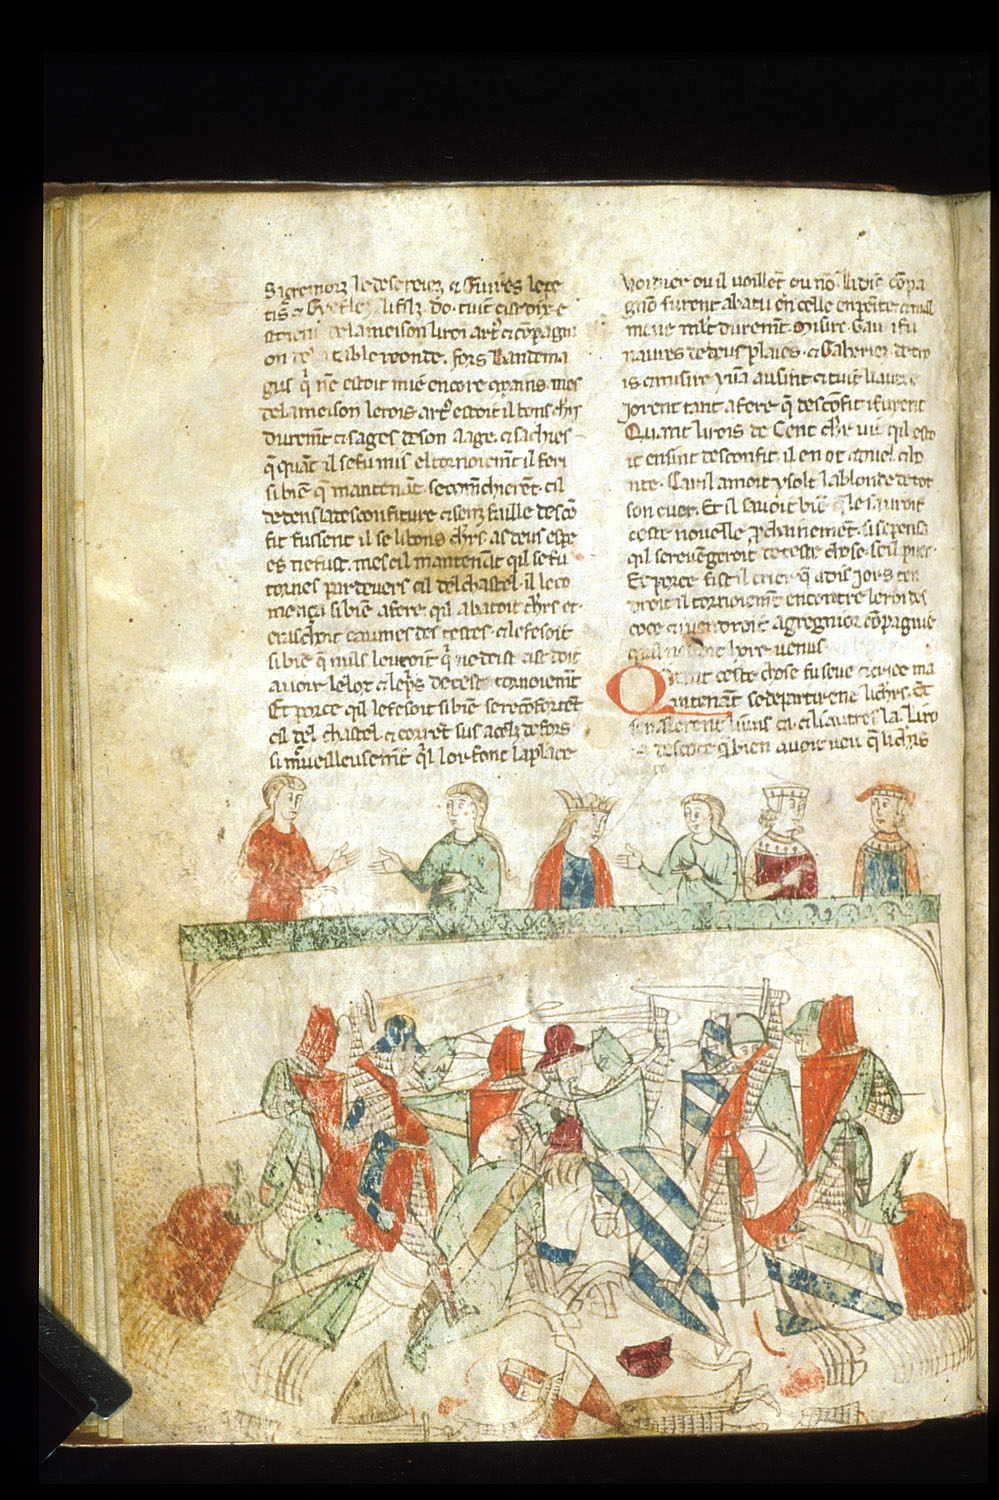 Sagremorz le deserrez ⁊ Guivres le pe
tis ⁊ Gyrflez li filz do. tuit cist dix e
stoient de la meison li roi artꝰ ⁊ cōpagn
on de la table reonde. fors Bandema
gus q̄ nē estoit mie encore ꝯpains. mes
de la meison le rois artꝰ estoit il bons chrs
duremt̄ ⁊ sages de son aage. ⁊ sachiez
q̄ quāt il se fu mis el tornoiemt̄ il feri
si biē q̄ mantenāt se comēchierēt cil
dedens la desconfiture ⁊ senz faille descō
fit fussent il se li bons chrs. as deus espe
es ne fust. mes cil mantenāt qil se fu
tornes par devers cil del chastel. il co
mença si biē a fere qil abatoit chrs et
erachoit eaumes des testes. ⁊ le fesoit
si biē q̄ nuls le veoit q̄ ne deist cist doit
avoir le lox ⁊ le pris de cest tornoiemt̄
Et porce qil le fesoit si biē se recōfortēt
cil del chastel ⁊ corrēt sus a celz defors
si mˀveilleusemt̄ ql lor font la place
voidier ou il voillēt ou nō. li dis cōpa
gnō furent abatu en celle enpēte ⁊ mal
menē mlt duremt̄. Misire Gau. i fu
naures de deus plaies. ⁊ Gaheriez de tro
is ⁊ misire yvā ausint ⁊ tuit li autre
i orent tant a fere q̄ descōfit i furent
Quant li rois de Cent chrs vit qil esto
it ensint desconfit il en ot
nte. Car il amoit ysolt la blonde de tot
son cuer. Et il savoit biē q̄ le sauroit
ceste novelle prochainemēt. si se pensa
qil se revēgeroit de ceste chose. se il puet.
Et porce fist il crier q̄ a dis jors ten
droit il tornoiemt̄ encontre le roi des
coce ⁊ vendroit a gregnior cōpagnie
qil n' lore venus
Quant ceste chose fu seue ⁊ criee ma
intenāt se departirent li chrs. Et
s'en alerent li uns ca. ⁊ li autres la. Li ro
is descoce q̄ bien avoit veu q̄ li chrs